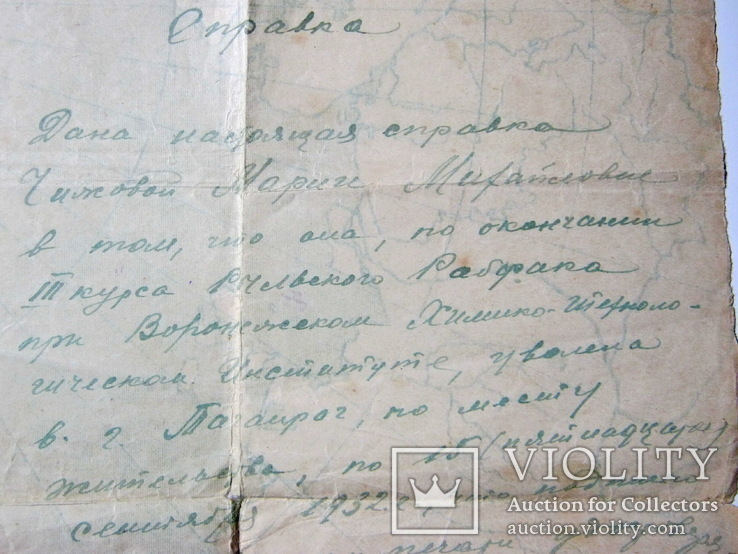 Справка
Дана настоящая справка
Чижовой Марии Михайловне
в том, что она, по окончании
III курса Рыльского Рабфака
при Воронежском Химико-Техноло-
гическом Институте, уволена
в г. Таганрог, по месту
жительства, по 15 (пятнадцатое)
сентября 1932 г., что
печати
VIOLITY
Auction for Collectors
auction.violity.com